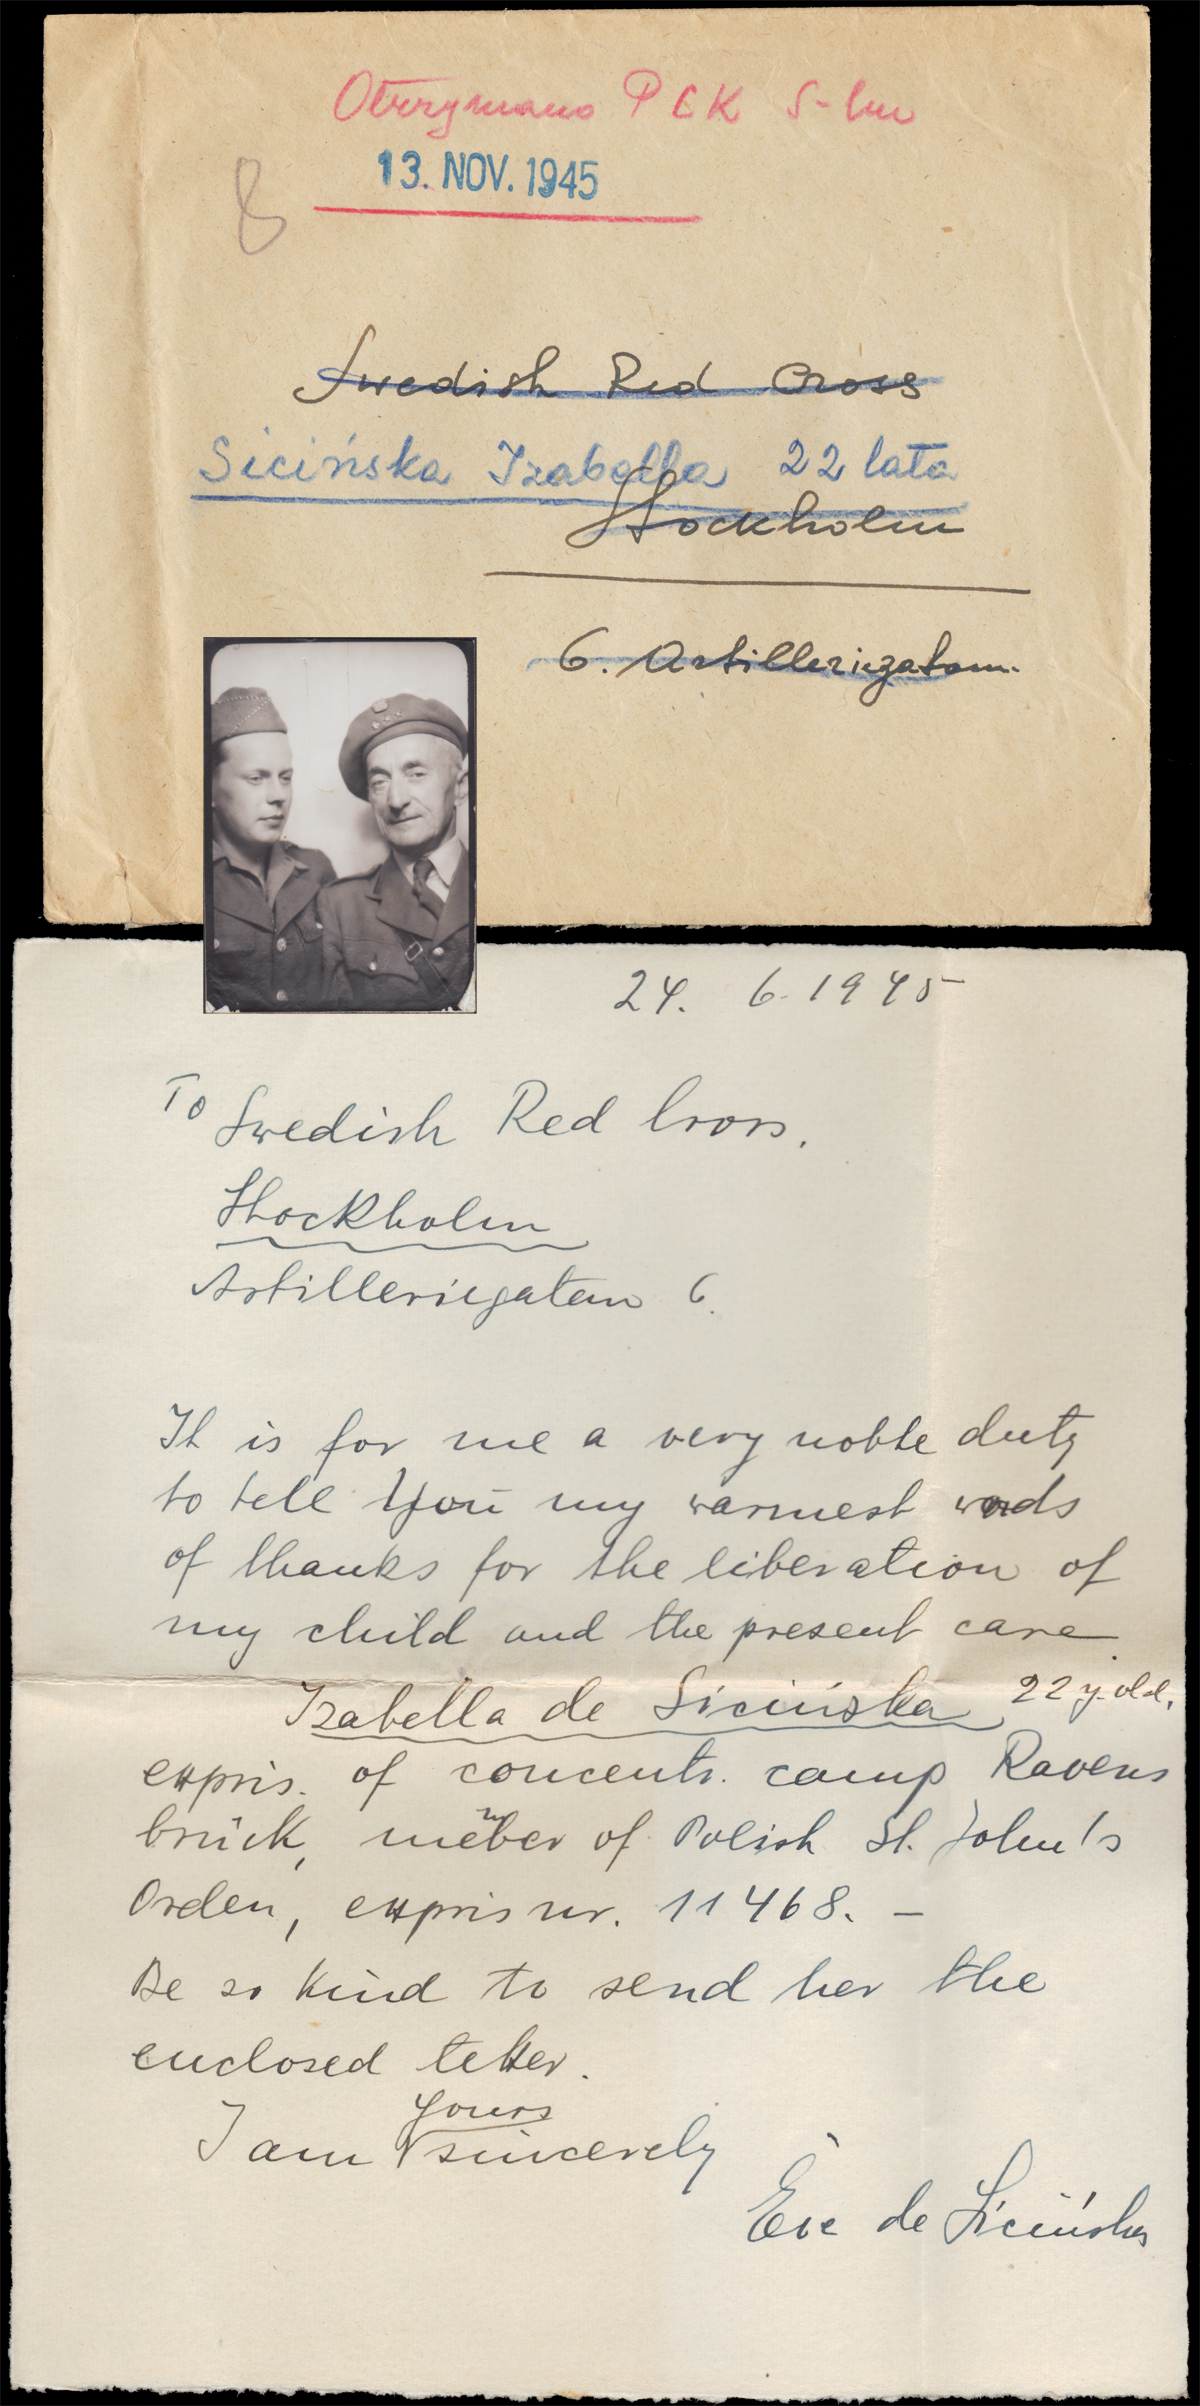 Otrzymano PCK S-lm
13. NOV. 1945
8
Swedish Red Cross
Sicińska Izabella 22 lata
Stockholm
6. Artilleriegatan.
24. 6. 1945
To Swedish Red Cross.
Stockholm
Artilleriegatan 6.
It is for me a very noble duty
to tell You my warmest words
of thanks for the liberation of
my child and the present care
Izabella de Sicińska, 22 y. old,
expris. of concentr. camp Ravens
brück, member of Polish St. John's
Orden, expris nr. 11468. –
Be so kind to send her the
enclosed letter.
I am yours sincerely
Eve de Sicińska